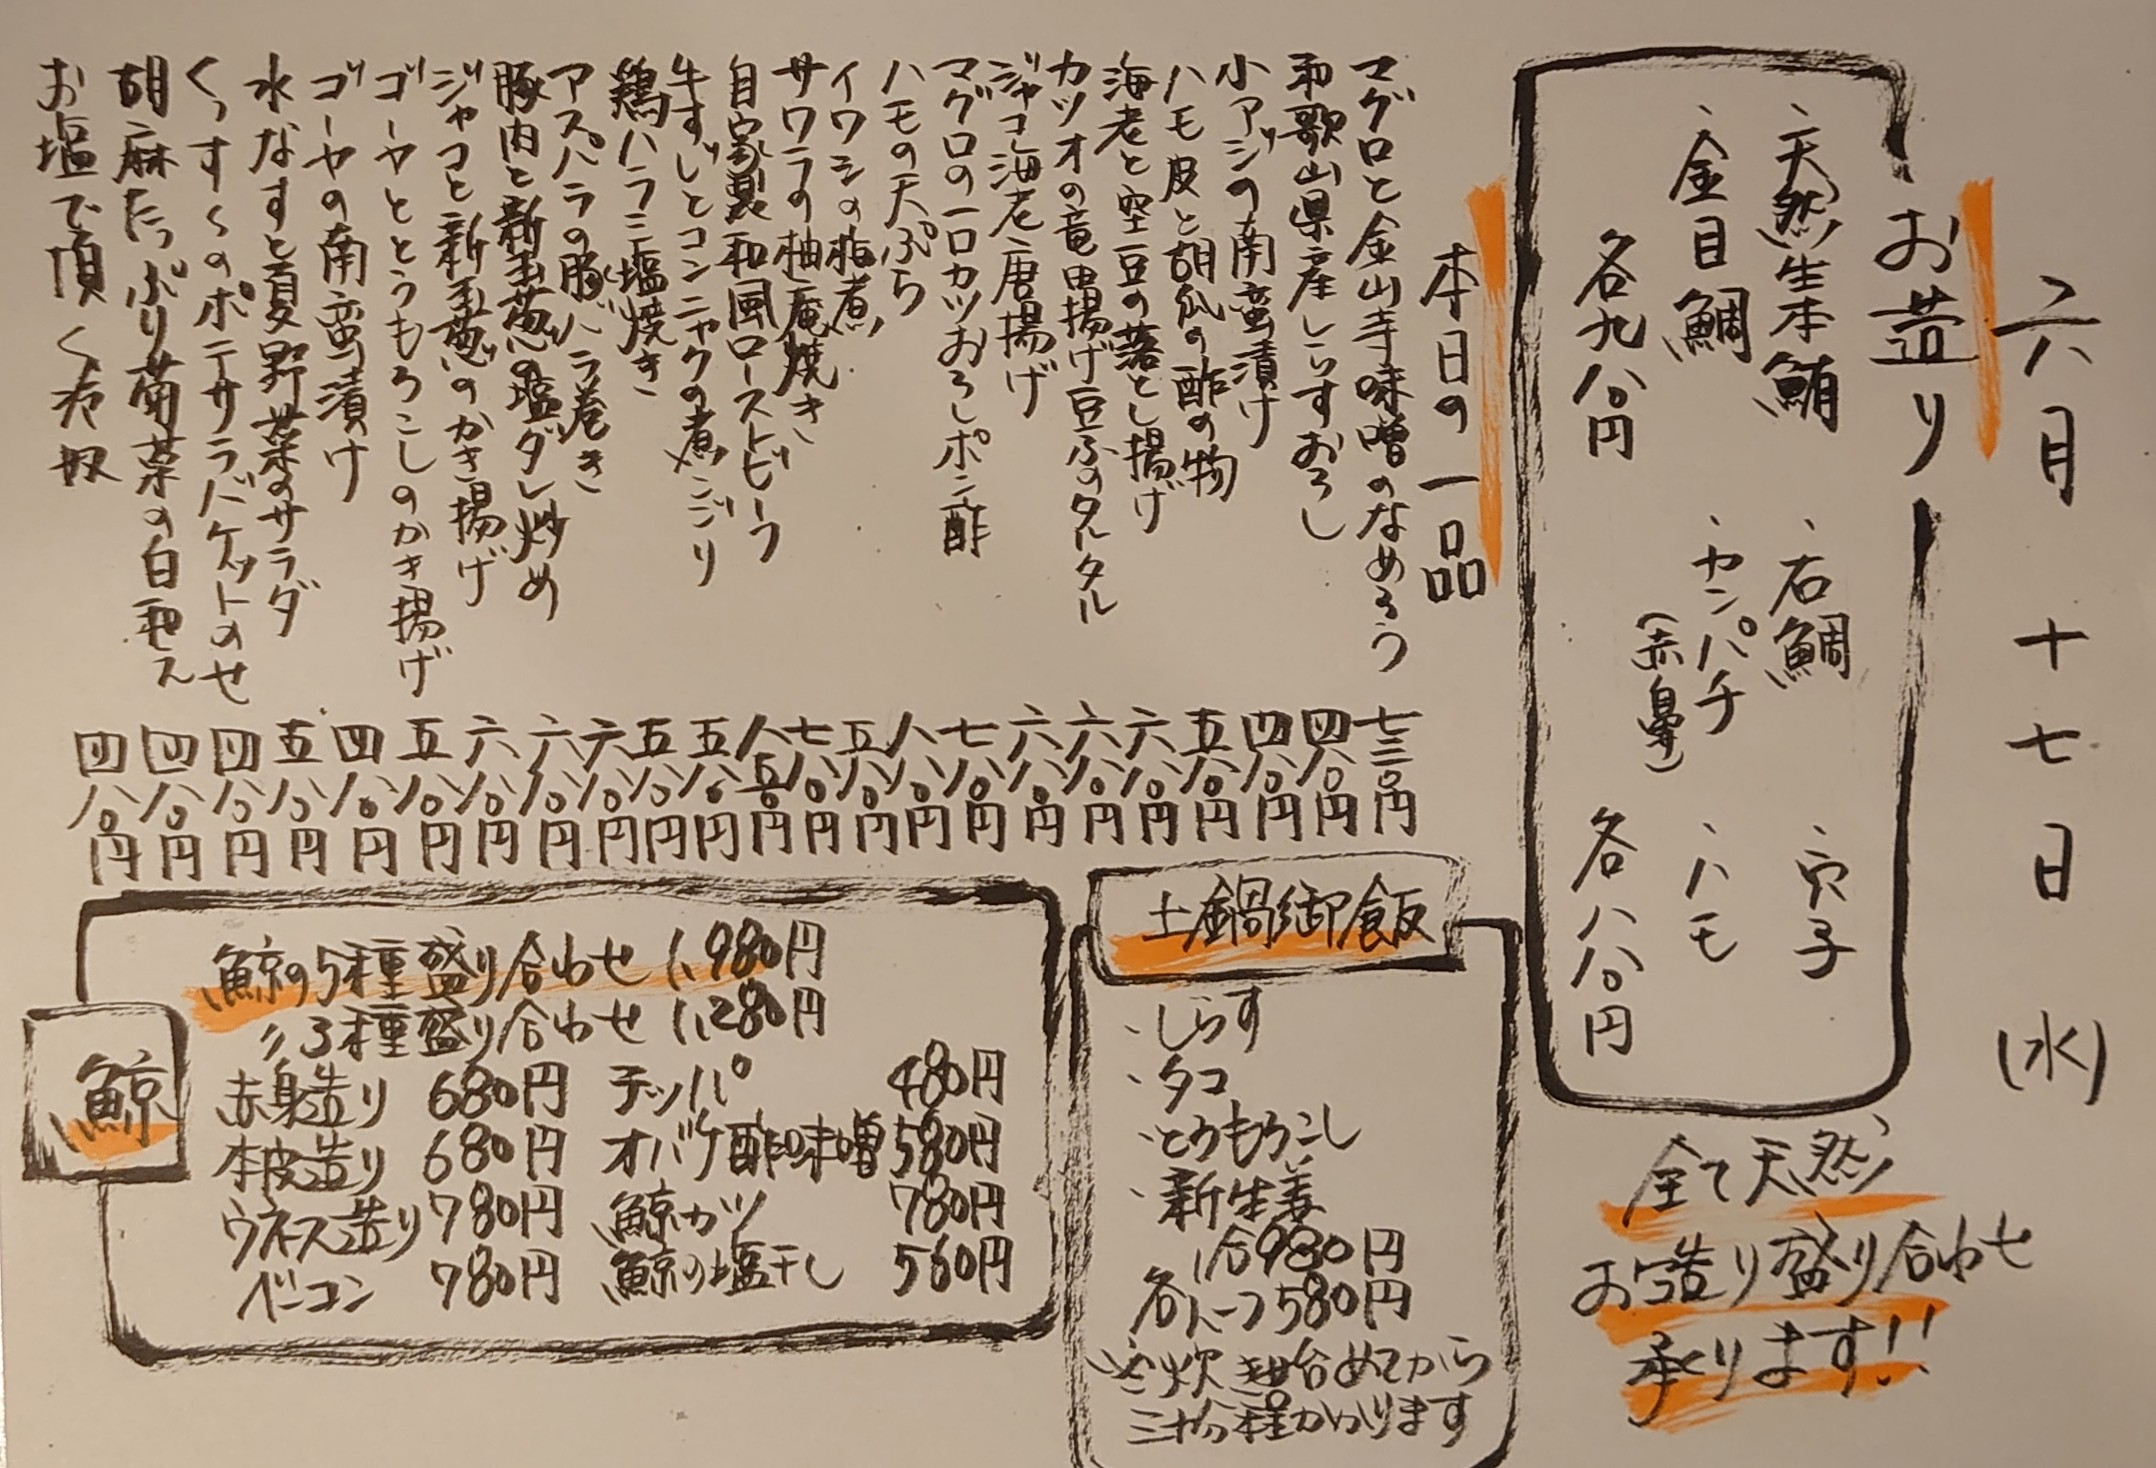 六月十七日(水)
お造り
、天然生本鮪
、石鯛
、穴子
、金目鯛
、カンパチ
(赤鼻)
、ハモ
各九八〇円
各八八〇円
全て天然
お造り盛り合わせ
承ります!!
本日の一品
マグロと金山寺味噌のなめろう 七三〇円
和歌山県産しらすおろし 四八〇円
小アジの南蛮漬け 四八〇円
ハモ皮と胡瓜の酢の物 五八〇円
海老と空豆の落とし揚げ 六八〇円
カツオの竜田揚げ豆ふのタルタル 六八〇円
ジャコ海老唐揚げ 六八〇円
マグロの一口カツおろしポン酢 七八〇円
ハモの天ぷら 八八〇円
イワシの梅煮 五八〇円
サワラの柚庵焼き 七八〇円
自家製和風ローストビーフ 八五〇円
牛すじとコンニャクの煮〆 五八〇円
鶏ハラミ塩焼き 五八〇円
アスパラの豚バラ巻き 六八〇円
豚肉と新玉葱の塩ダレ炒め 六八〇円
ジャコと新玉葱のかき揚げ 六八〇円
ゴーヤととうもろこしのかき揚げ 五八〇円
ゴーヤの南蛮漬け 四八〇円
水なすと夏野菜のサラダ 五八〇円
くっすくのポテサラバケットのせ 四八〇円
胡麻たっぷり菊菜の白和え 四八〇円
お塩で頂く冷奴 四八〇円
土鍋御飯
、しらす
、タコ
、とうもろこし
、新生姜
1合980円
各ハーフ580円
※炊き始めてから
三十分程かかります
鯨
鯨の5種盛り合わせ 1,980円
〃3種盛り合わせ 1,280円
赤身造り 680円 テッパ 480円
本皮造り 680円 オバケ酢味噌 580円
ウネス造り 780円 鯨カツ 780円
ベーコン 780円 鯨の塩干し 560円